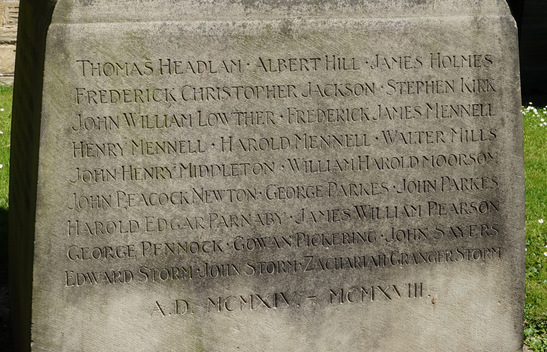 THOMAS HEADLAM · ALBERT HILL · JAMES HOLMES
FREDERICK CHRISTOPHER JACKSON · STEPHEN KIRK
JOHN WILLIAM LOWTHER · FREDERICK JAMES MENNELL
HENRY MENNELL · HAROLD MENNELL · WALTER MILLS
JOHN HENRY MIDDLETON · WILLIAM HAROLD MOORSOM
JOHN PEACOCK NEWTON · GEORGE PARKES · JOHN PARKES
HAROLD EDGAR PARNABY · JAMES WILLIAM PEARSON
GEORGE PENNOCK · GOWAN PICKERING · JOHN SAYERS
EDWARD STORM · JOHN STORM · ZACHARIAH GRANGER STORM
A.D. MCMXIV. – MCMXVIII.